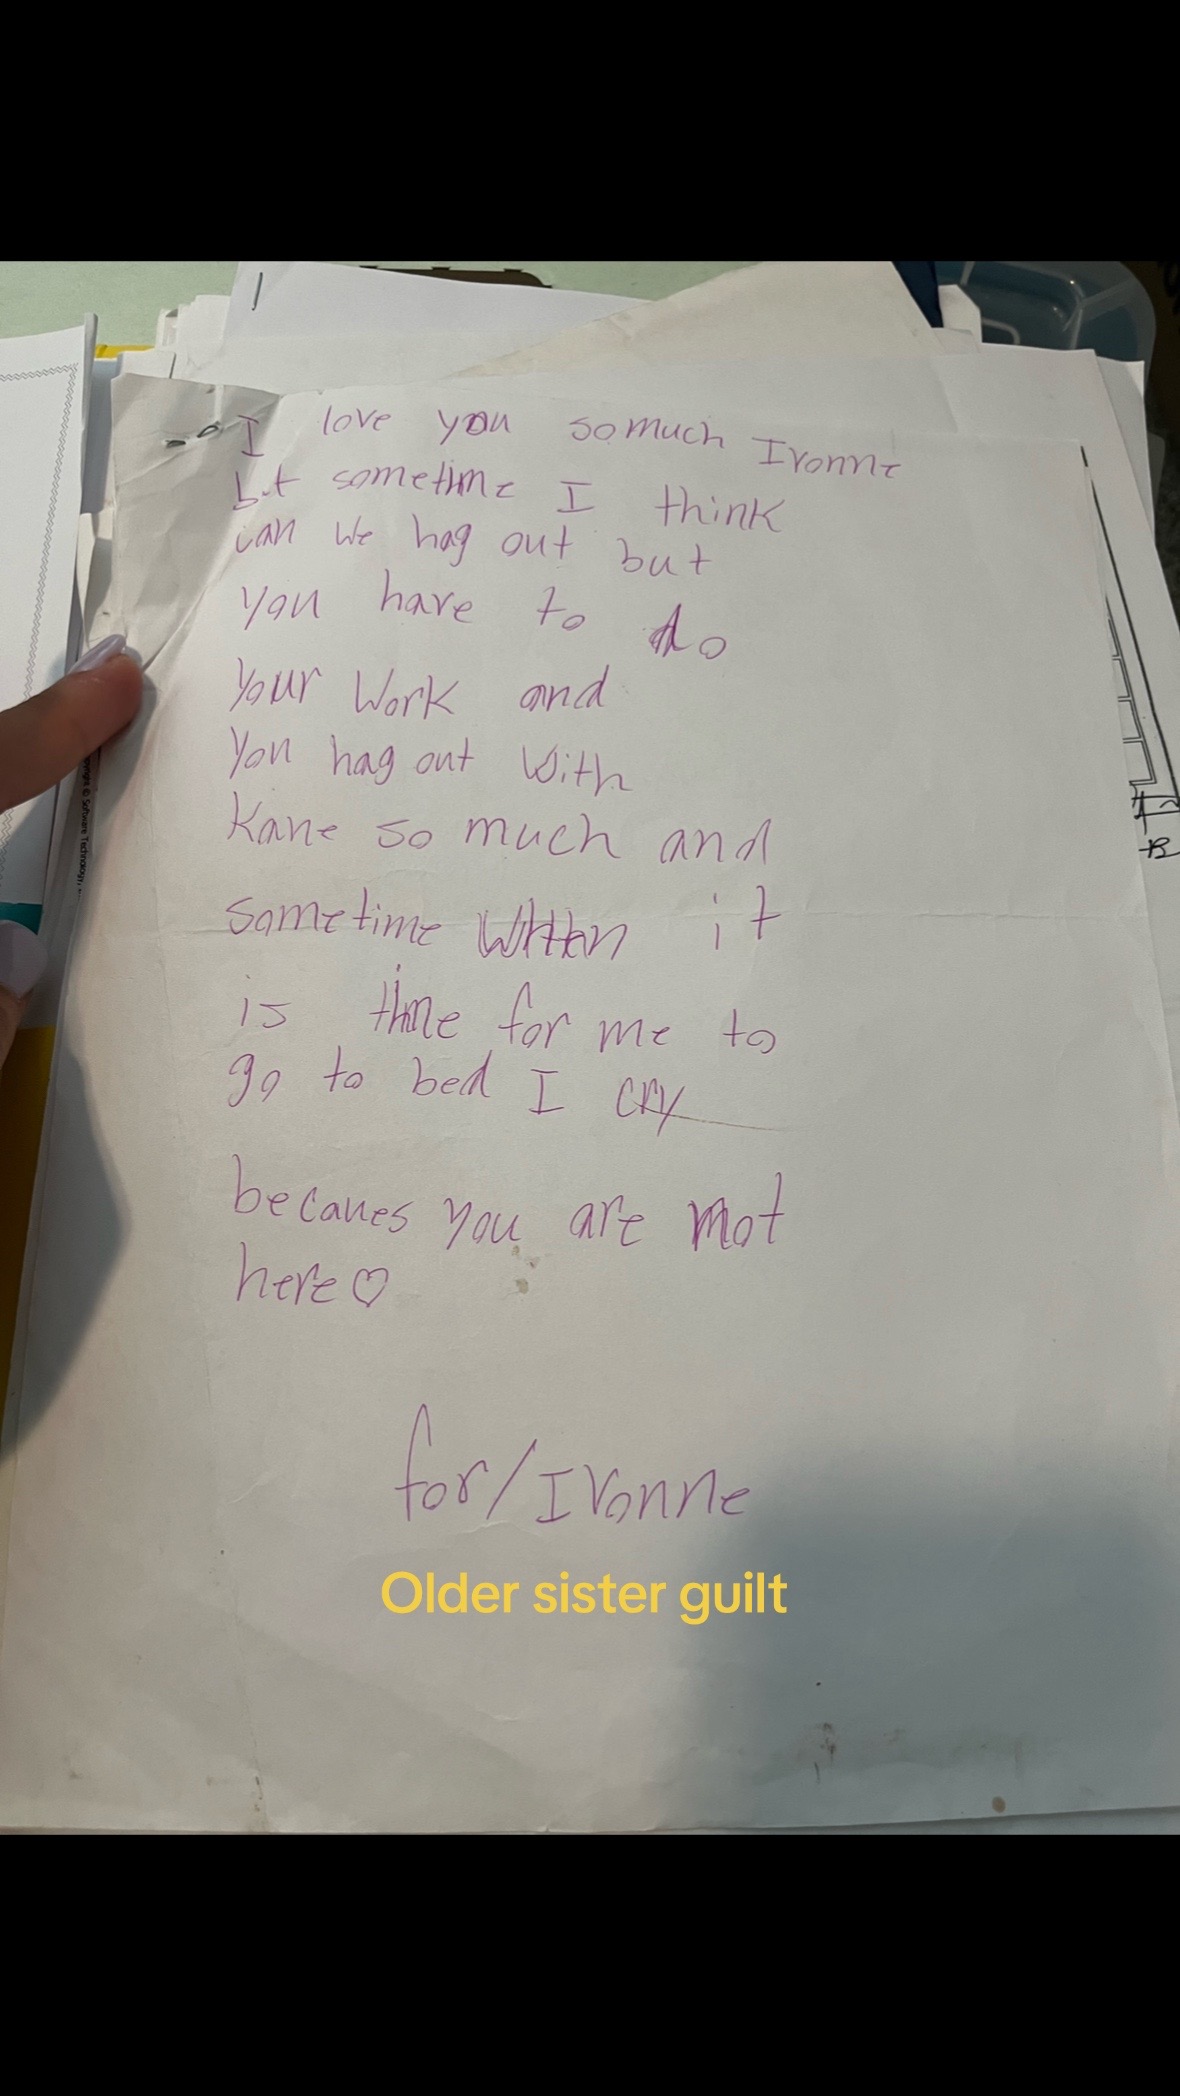 I love you somuch Ivonne
but sometime I think
can we hag out but
you have to do
your work and
you hag out with
Kane so much and
sometime when it
is time for me to
go to bed I cry
becaues you are not
here♡
for/Ivonne
Older sister guilt